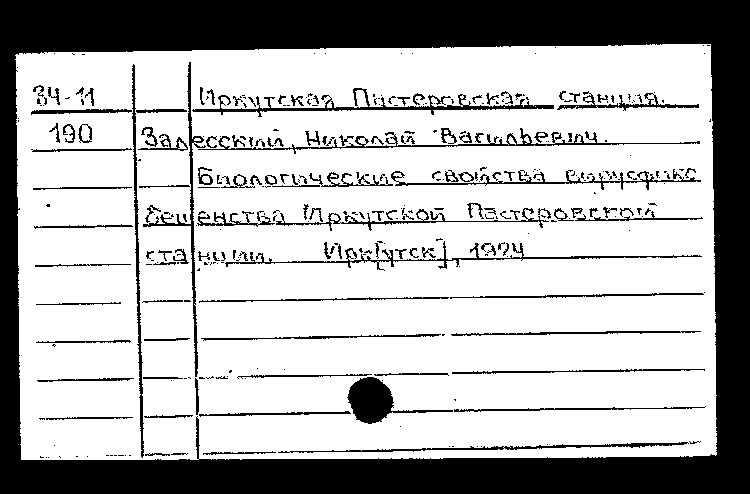 34-11 Иркутская Пастеровская станция.
190 Залесский, Николай Васильевич.
Биологические свойства вирусфикс
бешенства Иркутской Пастеровской
станции. Ирк[утск], 1924